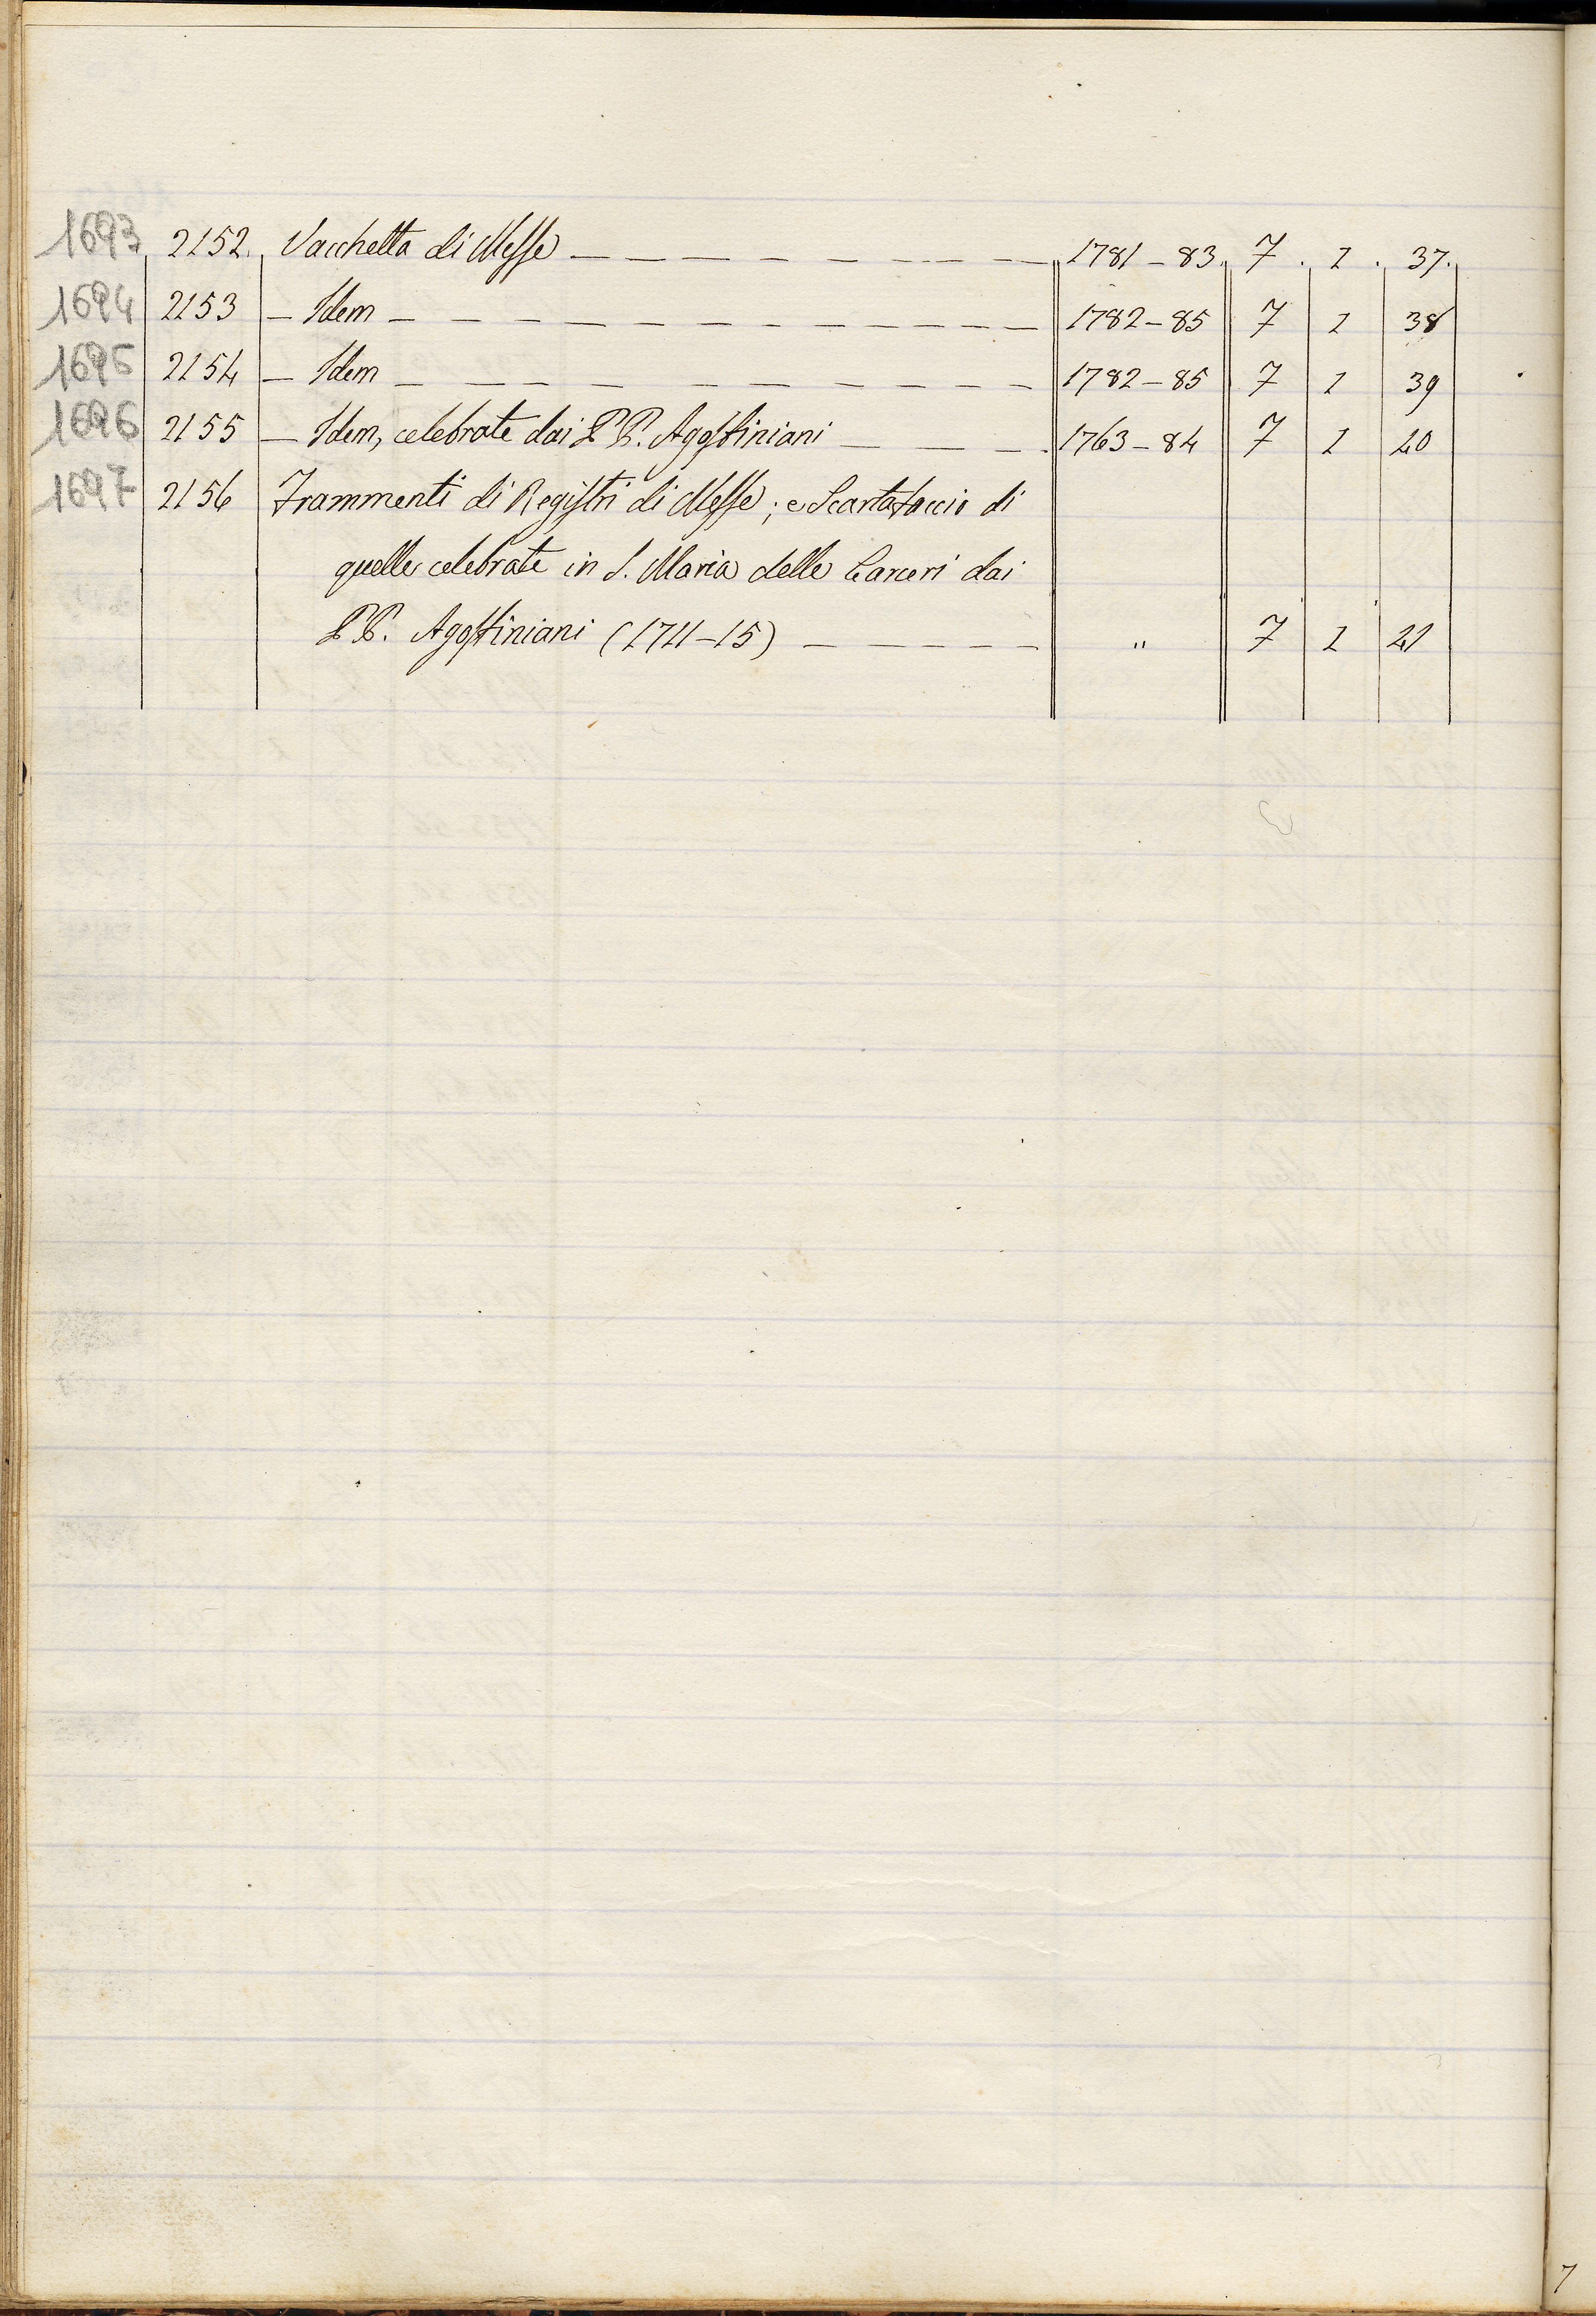 1693 2152. Vacchetta di Messe — — — — — — — — — 1781-83. 7. 1. 37.
1694 2153 — Idem — — — — — — — — — — — — 1782-85 7 1 38
1695 2154 — Idem — — — — — — — — — — — — 1782-85 7 1 39
1696 2155 — Idem, celebrate dai PP. Agostiniani — — — — 1763-84 7 1 40
1697 2156 Frammenti di Registri di Messe; e Scartafaccio di
quelle celebrate in S. Maria delle Carceri dai
PP. Agostiniani (1711-15) — — — — — " 7 1 41
7